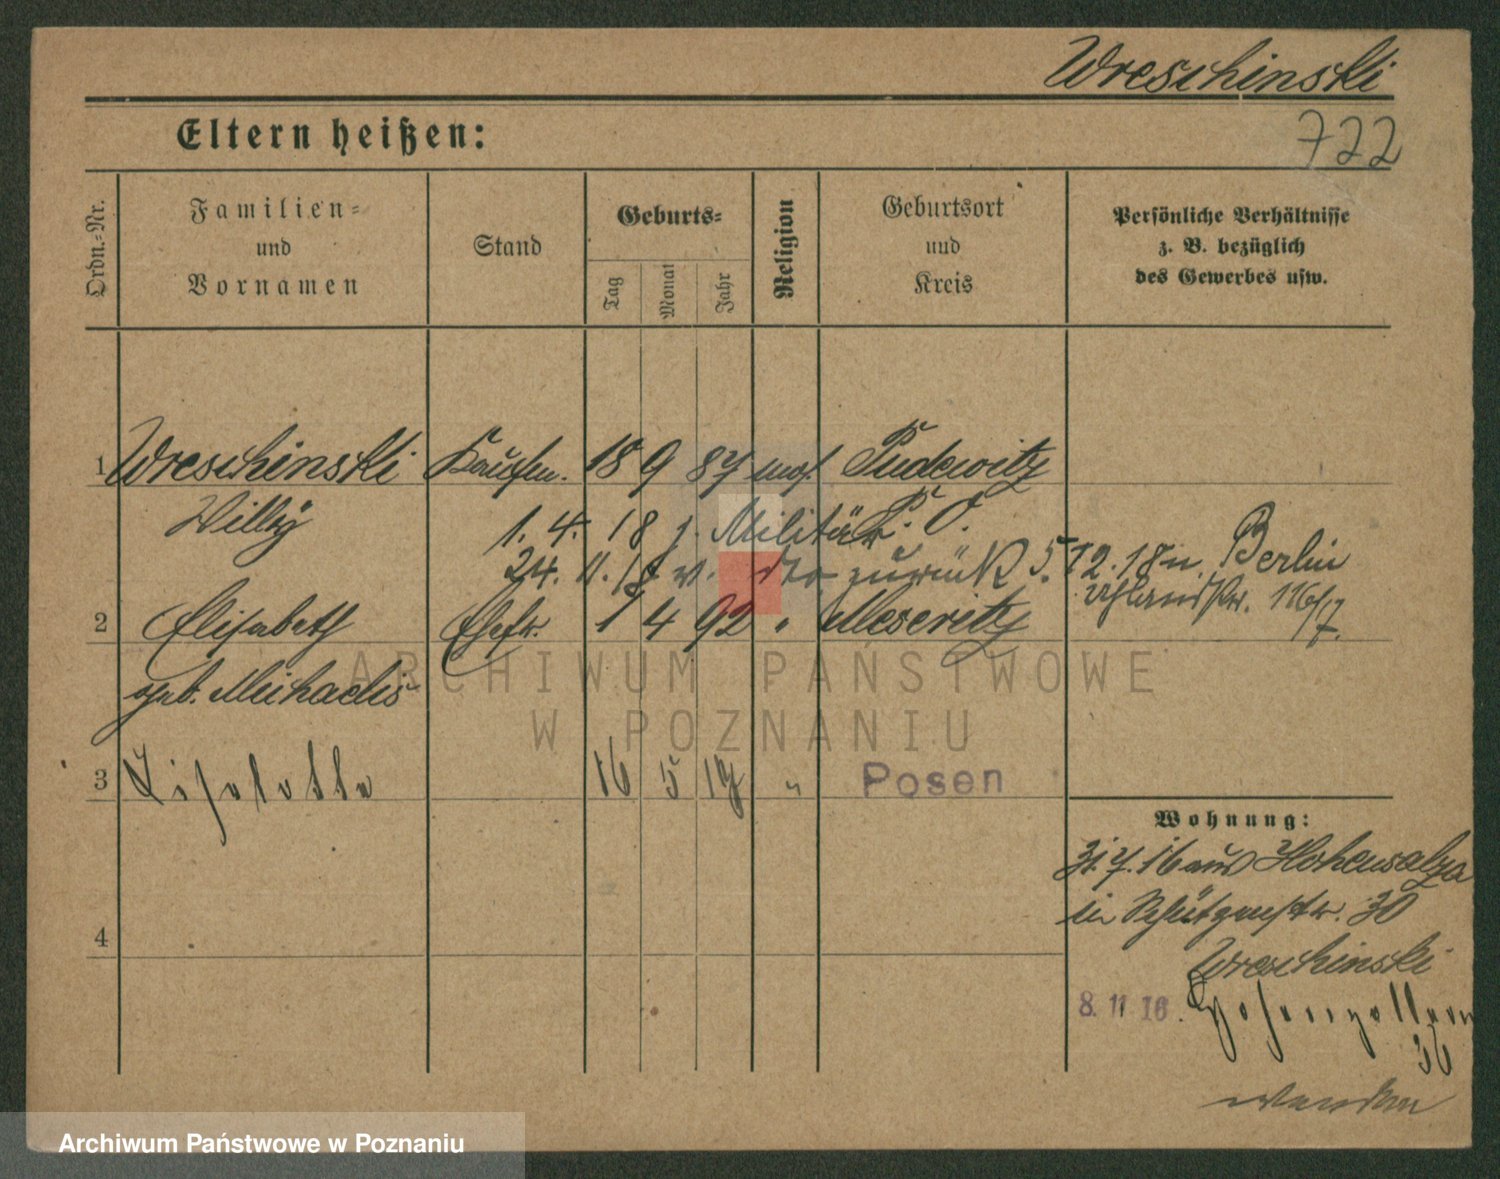 Wreschinski
Eltern heißen:
722
Ordn.-Nr.
Familien-
und
Vornamen
Stand
Geburts-
Tag
Monat
Jahr
Religion
Geburtsort
und
Kreis
Persönliche Verhältnisse
z. B. bezüglich
des Gewerbes usw.
1 Wreschinski Kaufm. 18 9 87 mos. Pudewitz
Willy P. O.
1. 4. 18 z. Militär.
24. 11. 18 v. dto zurück 5. 12. 18 n. Berlin
Uhlandstr. 116/7.
2 Elisabeth Ehefr. 1 4 92 " Meseritz
geb. Michaelis
ARCHIWUM PAŃSTWOWE
W POZNANIU
3 Liselotte 16 5 17 " Posen
Wohnung:
31. 7. 16 aus Hohensalza
in Schützenstr. 30
4
Wreschinski
8. 11 16. Hohenzollern
36
wenden
Archiwum Państwowe w Poznaniu